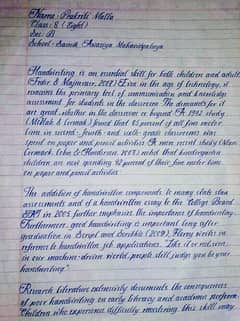 Name: Prakriti Malla
Class: 8 (Eight)
Sec: B
School: Sainik Awasiya Mahavidyalaya
Handwriting is an essential skill for both children and adults
(Feder & Majnemer, 2007). Even in the age of technology, it
remains the primary tool of communication and knowledge
assessment for students in the classroom. The demands for it
are great, whether in the classroom or beyond. A 1992 study
(McHale & Cermak) found that 85 percent of all fine motor
time in second-, fourth- and sixth-grade classrooms was
spent on paper and pencil activities. A more recent study (Marr,
Cermak, Cohn & Henderson, 2003) noted that kindergarten
children are now spending 42 percent of their fine motor time
on paper and pencil activities.
The addition of handwritten components to many state
assessments and of a handwritten essay to the College Board
SAT in 2005 further emphasize the importance of handwriting.
Furthermore, good handwriting is important long after
graduation. In Script and Scribble (2009), Florey writes in
reference to handwritten job applications, "Like it or not, even
in our machine-driven world, people still judge you by your
handwriting."
Research literature extensively documents the consequences
of poor handwriting on early literacy and academic performance.
Children who experience difficulty mastering this skill may